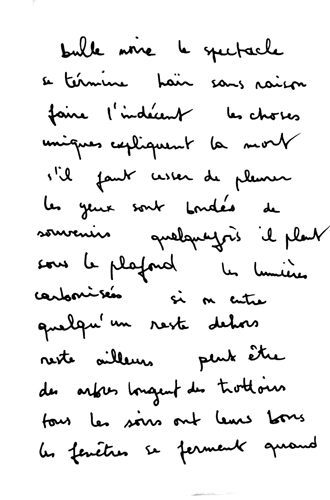 bulle noire le spectacle
se termine haïr sans raison
faire l'indécent les choses
uniques expliquent la mort
s'il faut cesser de pleurer
les yeux sont bondés de
souvenirs quelquefois il pleut
sous le plafond les lumières
carbonisées si on entre
quelqu'un reste dehors
reste ailleurs peut être
des arbres longent des trottoirs
tous les soirs ont leurs bons
les fenêtres se ferment quand